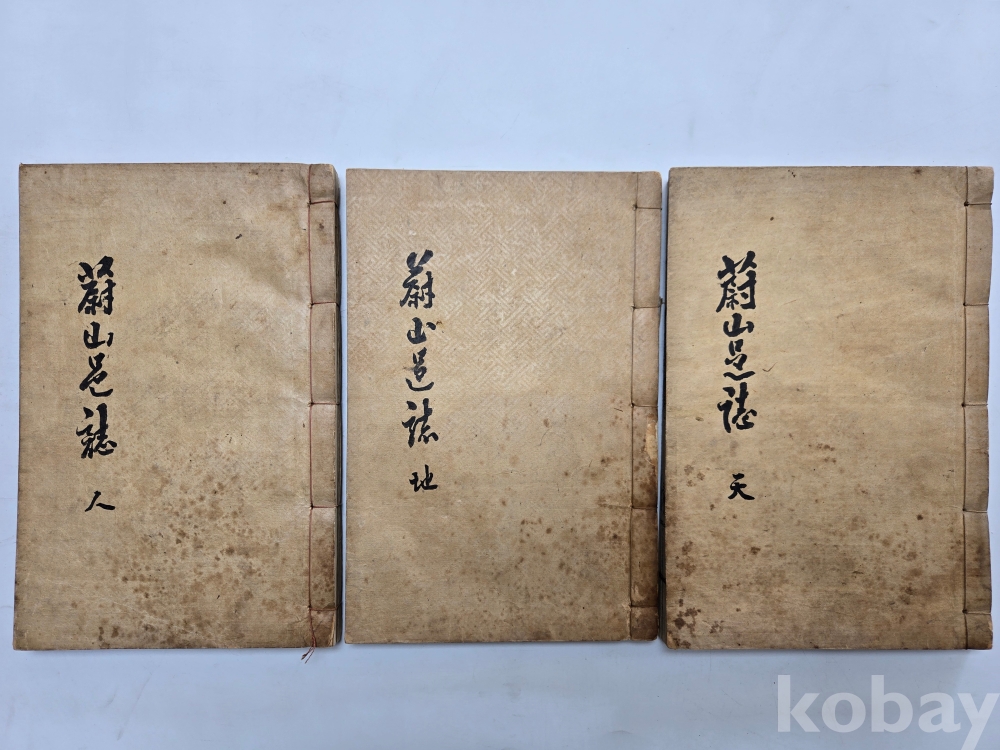 蔚山邑誌 天
蔚山邑誌 地
蔚山邑誌 人
kobay